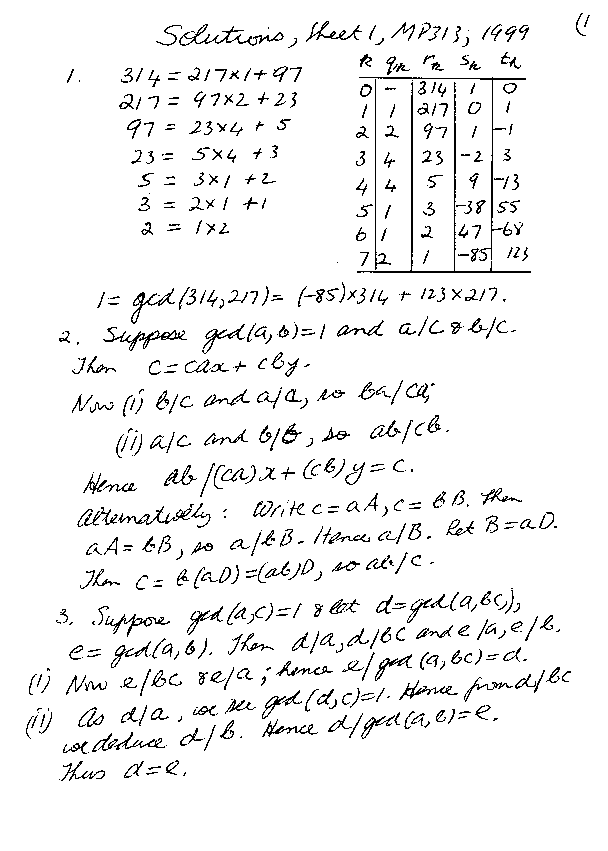 Solutions, Sheet 1, MP313, 1999 (1
1. 314 = 217×1 + 97
217 = 97×2 + 23
97 = 23×4 + 5
23 = 5×4 + 3
5 = 3×1 + 2
3 = 2×1 + 1
2 = 1×2
k qk rk sk tk
0 - 314 1 0
1 1 217 0 1
2 2 97 1 -1
3 4 23 -2 3
4 4 5 9 -13
5 1 3 -38 55
6 1 2 47 -68
7 2 1 -85 123
1 = gcd(314,217) = (-85)×314 + 123×217.
2. Suppose gcd(a,b)=1 and a/c & b/c.
Then c = cax + cby.
Now (i) b/c and a/a, so ba/ca;
(ii) a/c and b/b, so ab/cb.
Hence ab/(ca)x + (cb)y = c.
Alternatively: Write c = aA, c = bB. Then
aA = bB, so a/bB. Hence a/B. Let B = aD.
Then c = b(aD) = (ab)D, so ab/c.
3. Suppose gcd(a,c)=1 & let d = gcd(a,bc),
e = gcd(a,b). Then d/a, d/bc and e/a, e/b.
(i) Now e/bc & e/a; hence e/gcd(a,bc) = d.
(ii) As d/a, we see gcd(d,c)=1. Hence from d/bc
we deduce d/b. Hence d/gcd(a,b) = e.
Thus d = e.